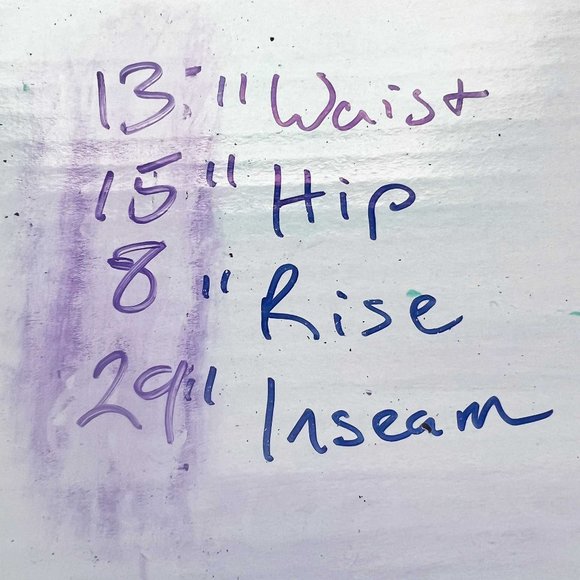 13" Waist
15" Hip
8" Rise
29" Inseam